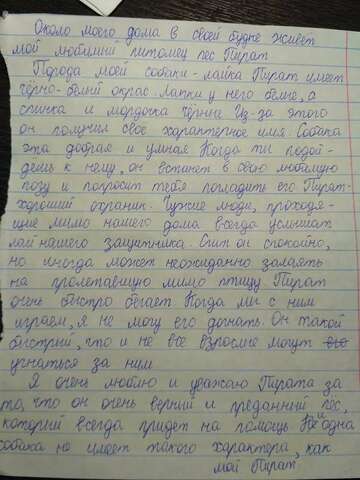 Около моего дома в своей будке живет
мой любимый питомец пес Пират
Порода моей собаки - лайка Пират имеет
чёрно-белый окрас. Лапки у него белые, а
спинка и мордочка чёрные Из-за этого
он получил свое характерное имя Собака
эта добрая и умная Когда ты подой-
дешь к нему, он встанет в свою любимую
позу и попросит тебя погладить его Пират-
хороший охраник. Чужие люди, проходя-
щие мимо нашего дома всегда услышат
лай нашего защитника. Спит он спокойно,
но иногда может неожиданно залаять
на пролетавшую мимо птицу. Пират
очень быстро бегает Когда мы с ним
играем, я не могу его догнать. Он такой
быстрый, что и не все взрослые могут его
угнаться за ним
Я очень люблю и уважаю Пирата за
то, что он очень верный и преданный пес,
который всегда придет на помощь Ни одна
собака не имеет такого характера, как
мой Пират